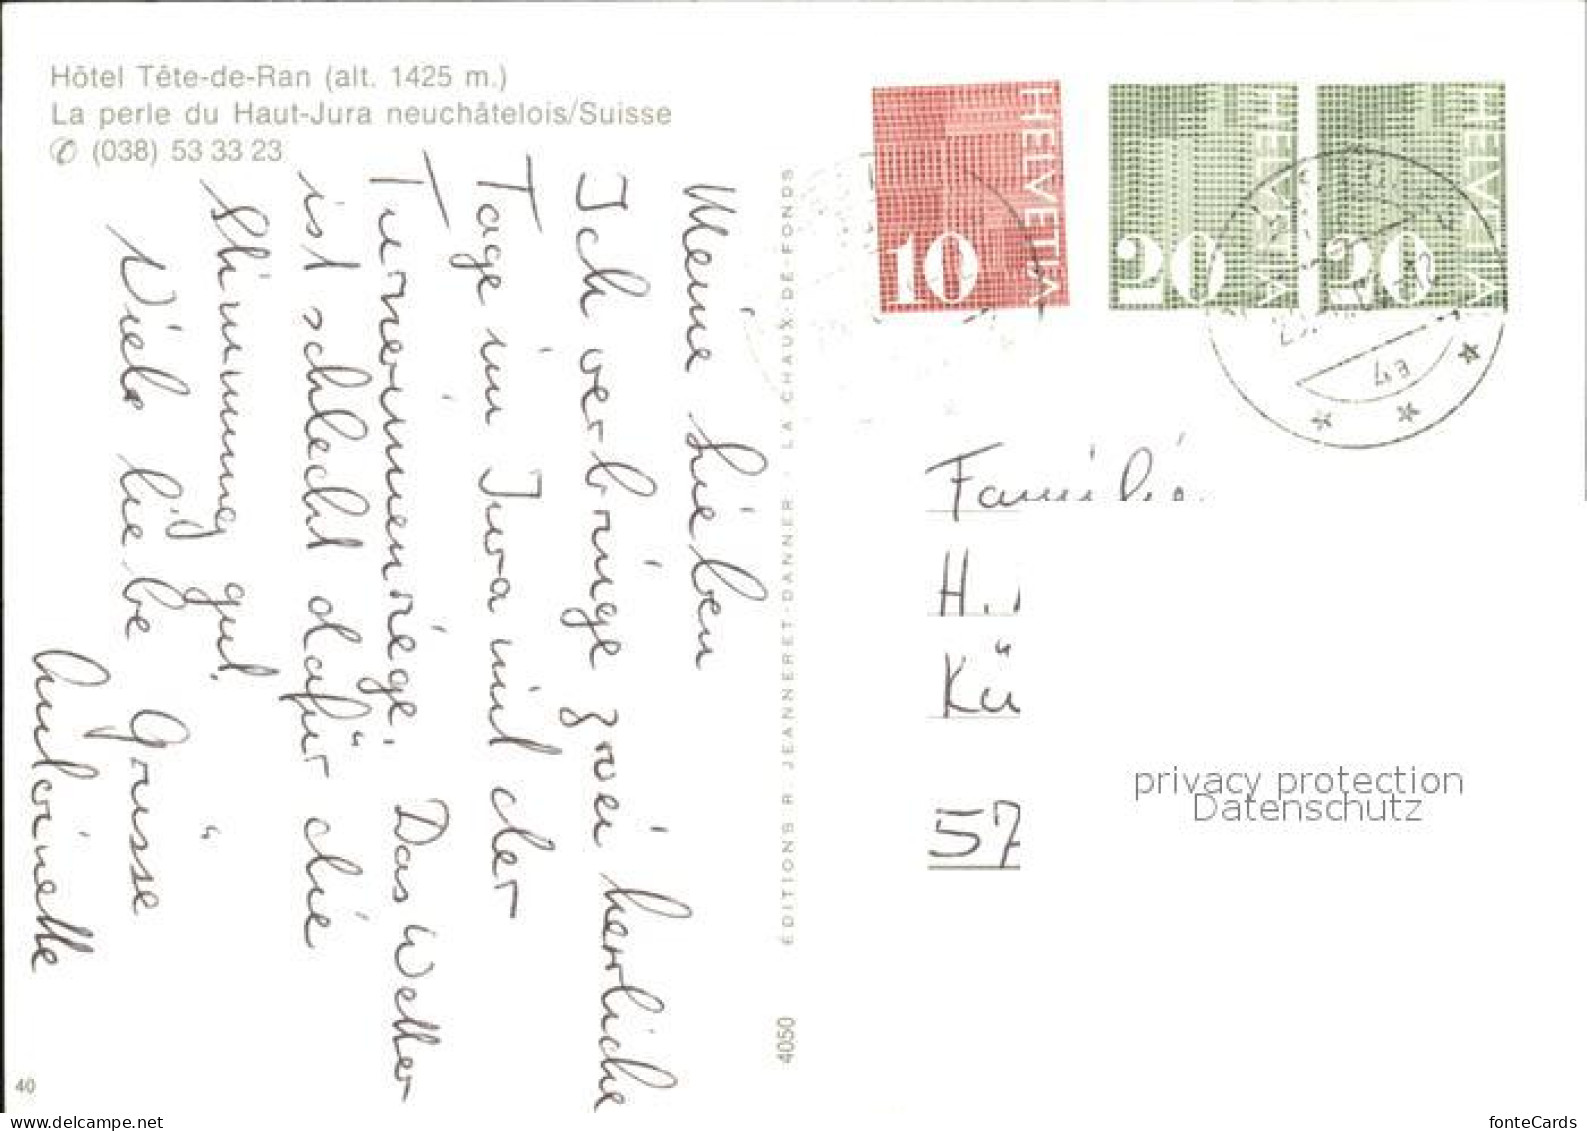 Hôtel Tête-de-Ran (alt. 1425 m.)
La perle du Haut-Jura neuchâtelois/Suisse
✆ (038) 53 33 23
Meine Lieben
Ich verbringe zwei herrliche
Tage im Jura mit der
Turnerinnenriege. Das Wetter
ist schlecht dafür die
Stimmung gut.
Viele liebe Grüsse
ÉDITIONS R. JEANNERET-DANNER · LA CHAUX-DE-FONDS
4050
40
HELVETIA
10
HELVETIA
20
HELVETIA
20
Familie
H.
Kü
57
privacy protection
Datenschutz
www.delcampe.net
fonteCards